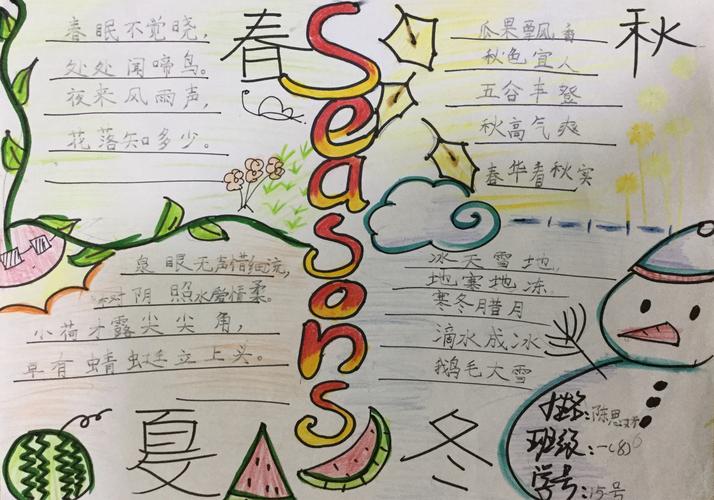 春
春眠不觉晓，
处处闻啼鸟。
夜来风雨声，
花落知多少。
Seasons
秋
瓜果飘香
秋色宜人
五谷丰登
秋高气爽
春华秋实
泉眼无声惜细流，
树阴照水爱情柔。
小荷才露尖尖角，
早有蜻蜓立上头。
夏
冰天雪地，
地寒地冻，
寒冬腊月
滴水成冰
鹅毛大雪
冬
姓名：陈思
班级：一(8)
学号：15号